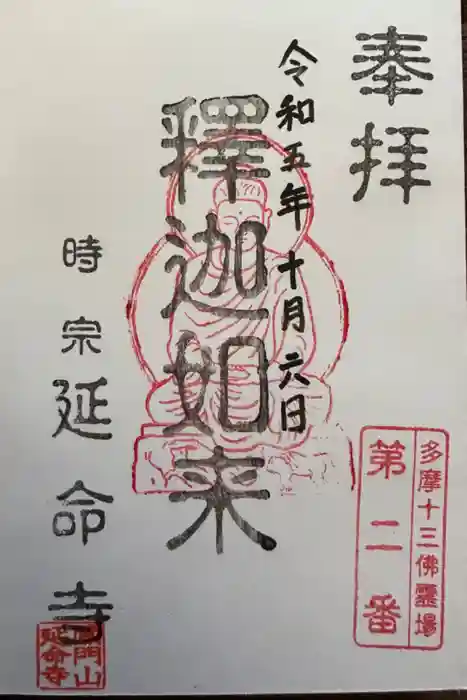 奉拝
多摩十三佛霊場
第二番
令和五年十月六日
釋迦如来
時宗延命寺
延命寺